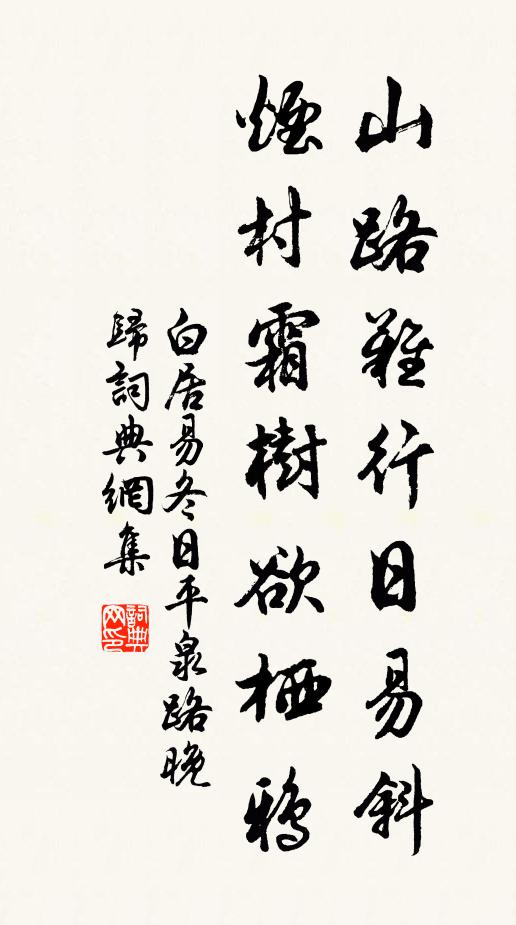 山路難行日易斜
煙村霜樹欲栖鴉
白居易冬日平泉路晚
歸詞典網集
詞典
网印